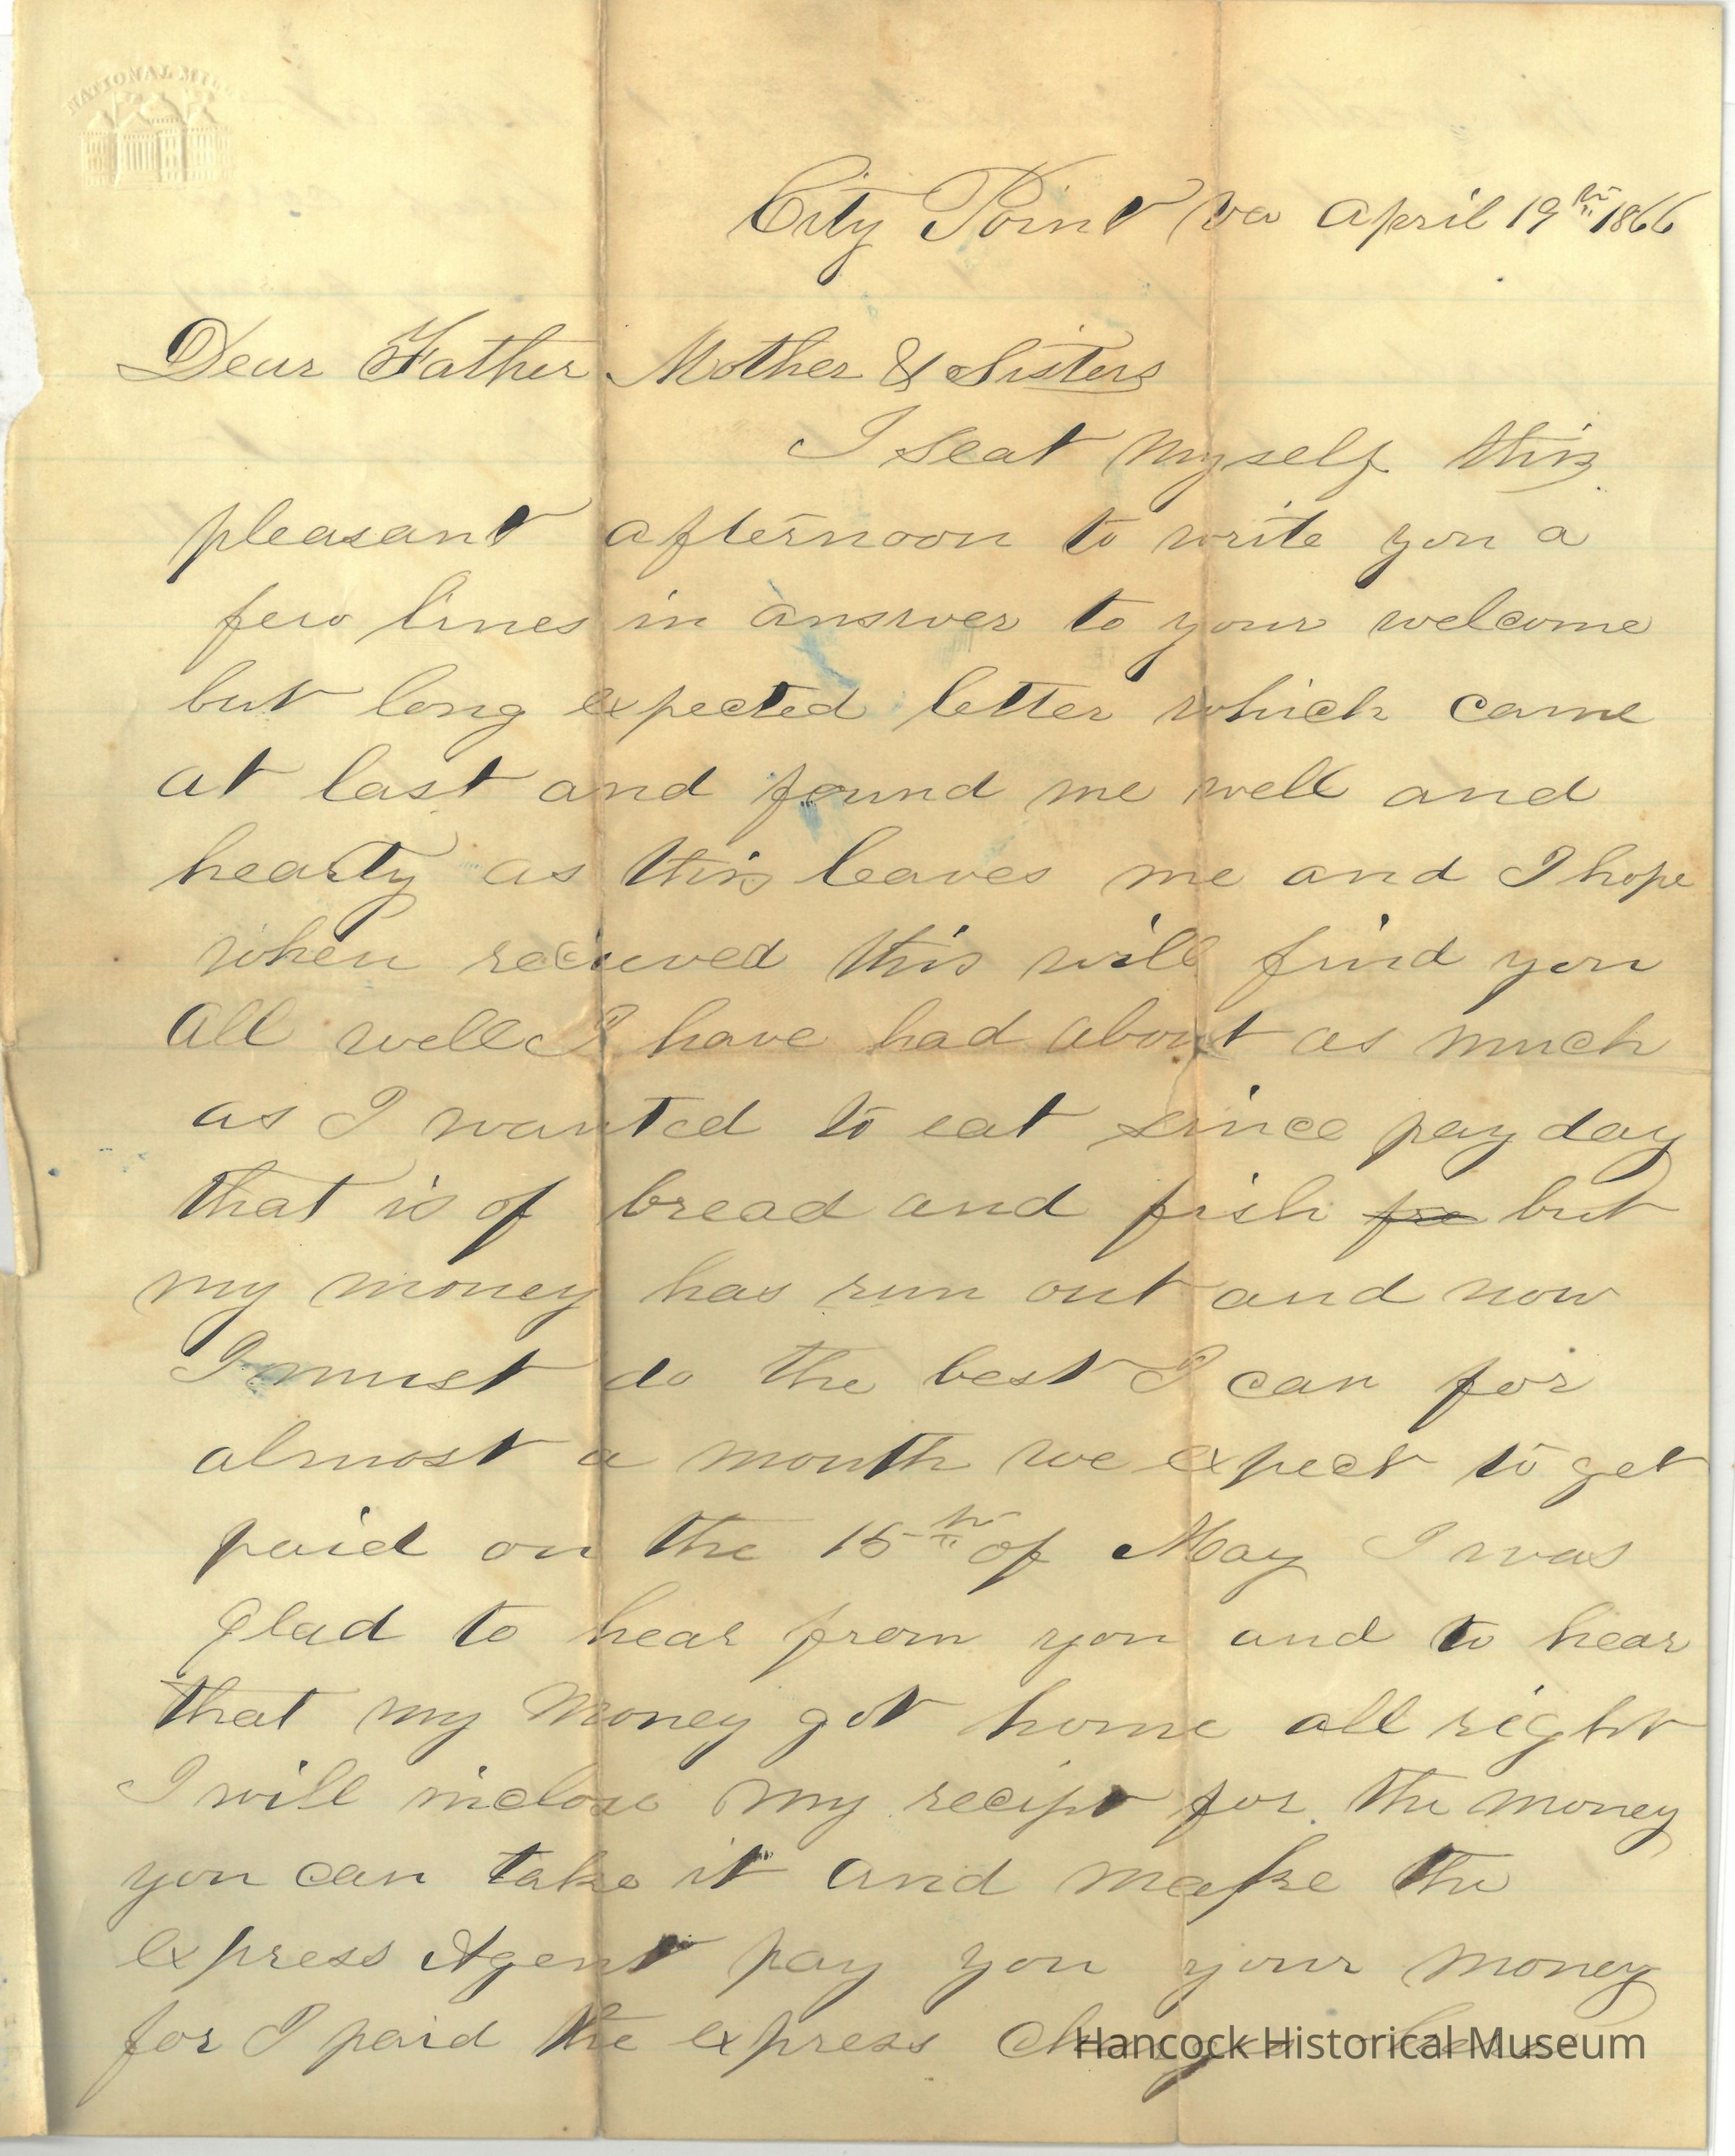 NATIONAL MILL
City Point Va April 19th 1866
Dear Father Mother & Sisters
I seat myself this
pleasant afternoon to write you a
few lines in answer to your welcome
but long expected letter which came
at last and found me well and
hearty as this leaves me and I hope
when recieved this will find you
all well I have had about as much
as I wanted to eat since pay day
that is of bread and fish but
my money has run out and now
I must do the best I can for
almost a month we expect to get
paid on the 15th of May I was
glad to hear from you and to hear
that my money got home all right
I will inclose my recipt for the money
you can take it and make the
express Agent pay you your money
for I paid the express
Hancock Historical Museum